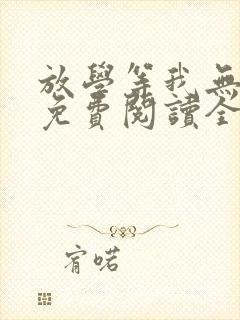 放學等我無
免費閱讀全
宥喏